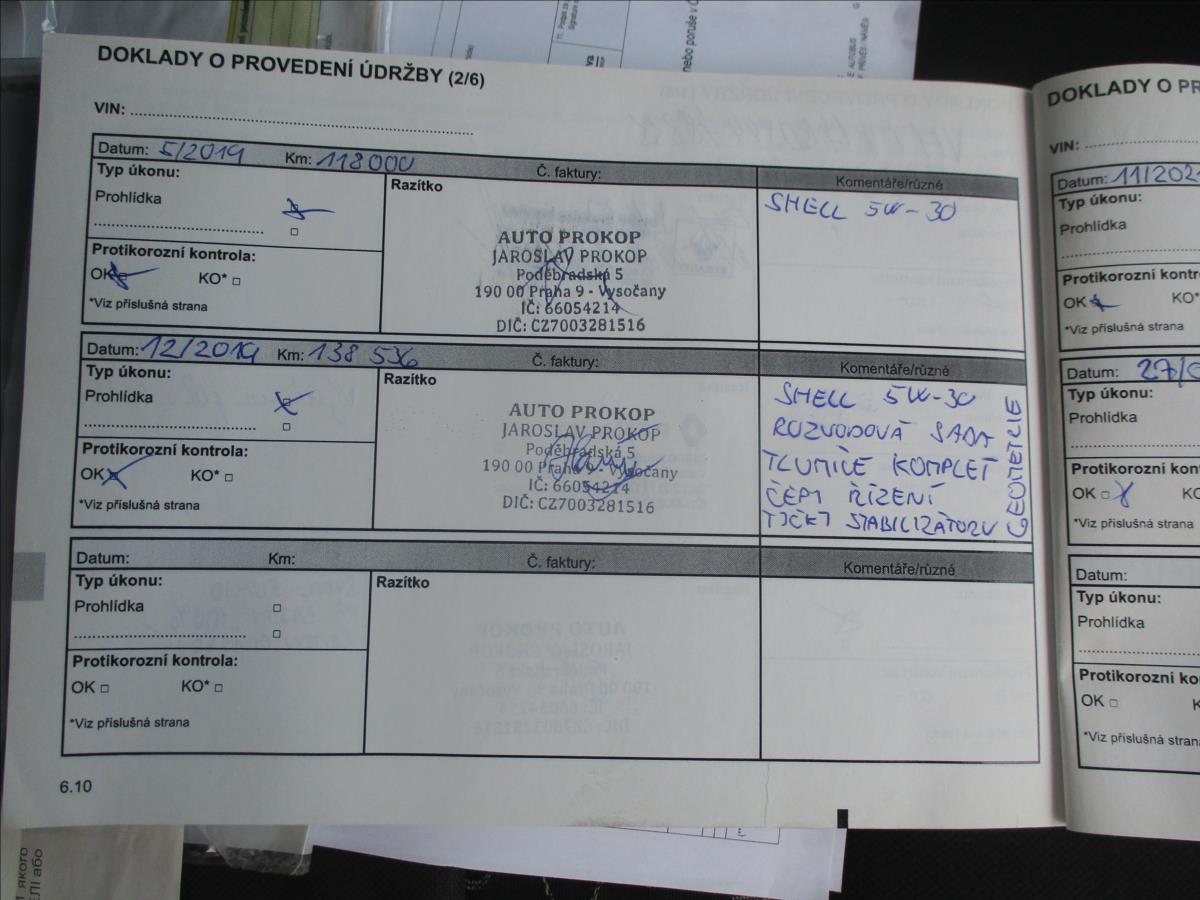 DOKLADY O PROVEDENÍ ÚDRŽBY (2/6)
VIN:
Datum: 5/2019 Km: 118000 Č. faktury: Komentáře/různé
Typ úkonu:
Prohlídka
Protikorozní kontrola:
OK KO*
*Viz příslušná strana
Razítko
AUTO PROKOP
JAROSLAV PROKOP
Poděbradská 5
190 00 Praha 9 - Vysočany
IČ: 66054214
DIČ: CZ7003281516
SHELL 5W-30
Datum: 12/2019 Km: 138 536 Č. faktury: Komentáře/různé
Typ úkonu:
Prohlídka
Protikorozní kontrola:
OK KO*
*Viz příslušná strana
Razítko
AUTO PROKOP
JAROSLAV PROKOP
Poděbradská 5
190 00 Praha 9 - Vysočany
IČ: 66054214
DIČ: CZ7003281516
SHELL 5W-30
ROZVODOVÁ SADA
TLUMIČE KOMPLET
ČEPY ŘÍZENÍ
TYČKY STABILIZÁTORU
GEOMETRIE
Datum: Km: Č. faktury: Komentáře/různé
Typ úkonu:
Prohlídka
Protikorozní kontrola:
OK KO*
*Viz příslušná strana
Razítko
6.10
DOKLADY O PR
VIN:
Datum: 11/202
Typ úkonu:
Prohlídka
Protikorozní kontro
OK KO*
*Viz příslušná strana
Datum: 27/0
Typ úkonu:
Prohlídka
Protikorozní ko
OK KO
*Viz příslušná strana
Datum:
Typ úkonu:
Prohlídka
Protikorozní ko
OK K
*Viz příslušná strana
nebo poruše v Č